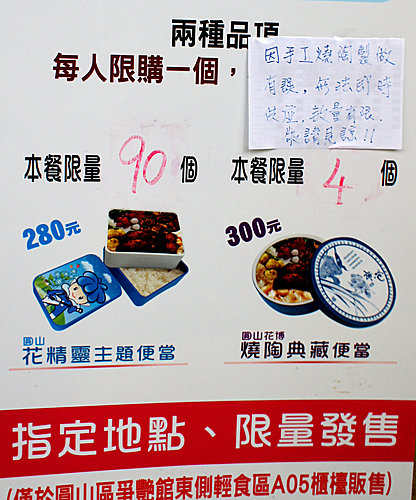 兩種品項
每人限購一個，
因手工燒陶製做
有誤，无法即時
供應，數量有限，
敬請見諒!!
本餐限量 90 個
本餐限量 4 個
280元
300元
圓山
花精靈主題便當
圓山花博
燒陶典藏便當
指定地點、限量發售
(僅於圓山區爭艷館東側輕食區A05櫃檯販售)